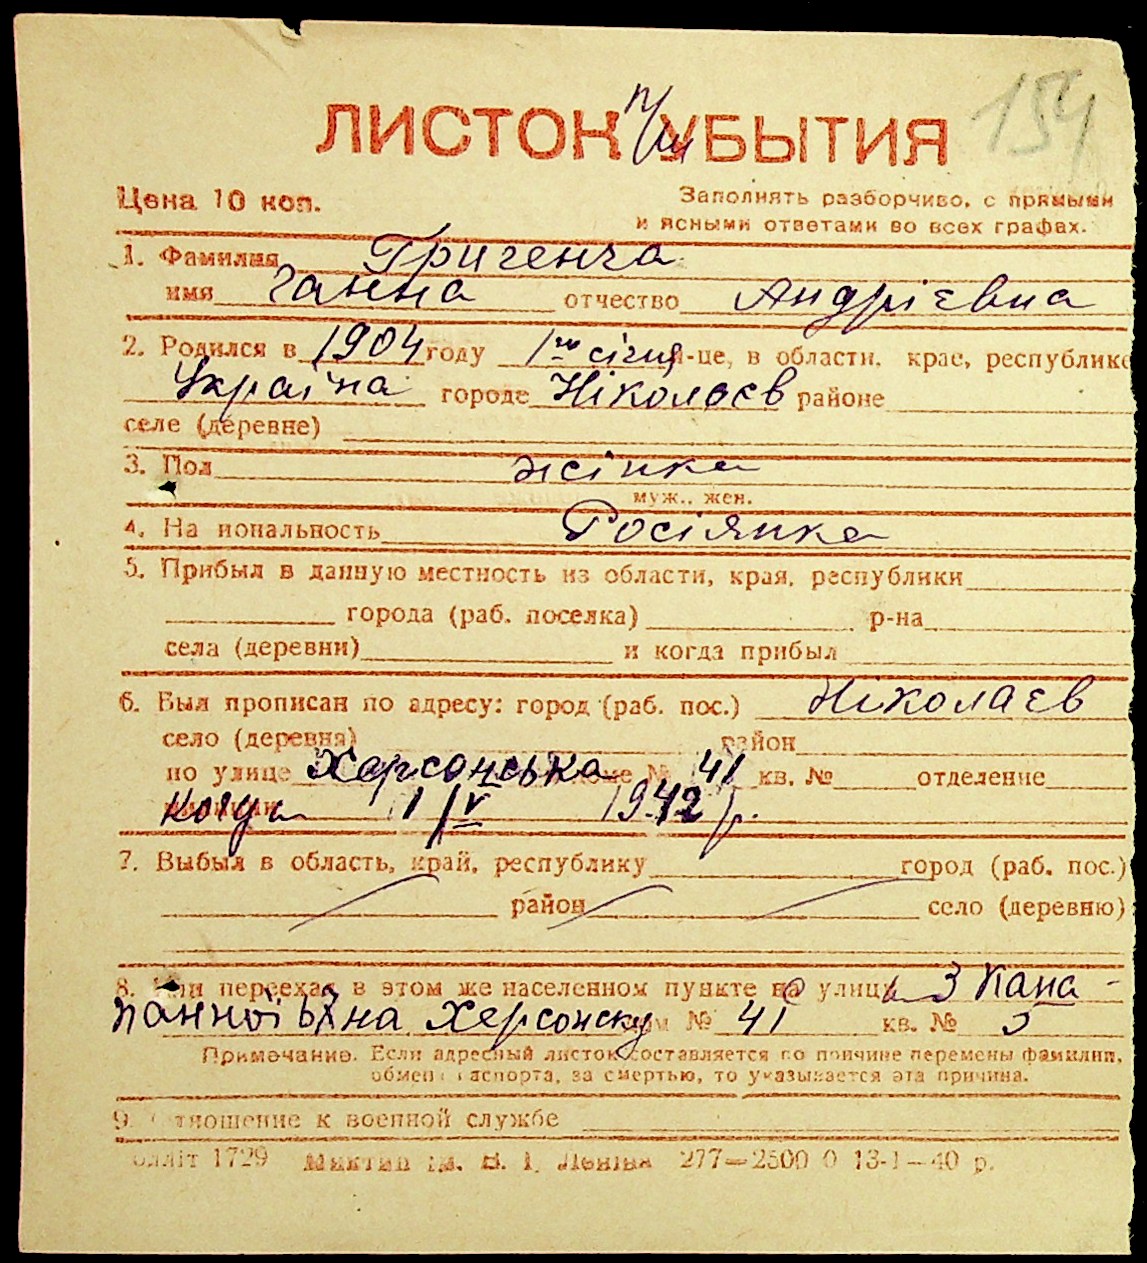 ЛИСТОК УБЫТИЯ
154
Цена 10 коп.
Заполнять разборчиво, с прямыми
и ясными ответами во всех графах.
1. Фамилия Григенча
имя Ганна отчество Андрієвна
2. Родился в 1904 году 1го січня м-це, в области, крае, республике
Україна городе Ніколаєв районе
селе (деревне)
3. Пол жінка
муж., жен.
4. На иональность Росіянка
5. Прибыл в данную местность из области, края, республики
города (раб. поселка) р-на
села (деревни) и когда прибыл
6. Был прописан по адресу: город (раб. пос.) Ніколаєв
село (деревня) район
по улице Херсонська № 41 кв. № отделение
когда 1/V 1942 р.
7. Выбыл в область, край, республику город (раб. пос.)
район село (деревню)
8. Или переехал в этом же населенном пункте на улицу З
на Херсонску дом № 41 кв. №
Примечание. Если адресный листок составляется по причине перемены фамилии,
обмена паспорта, за смертью, то указывается эта причина.
9. Отношение к военной службе
олліт 1729 Миктип ім. В. І. Леніна 277—2500 0 13-1—40 р.